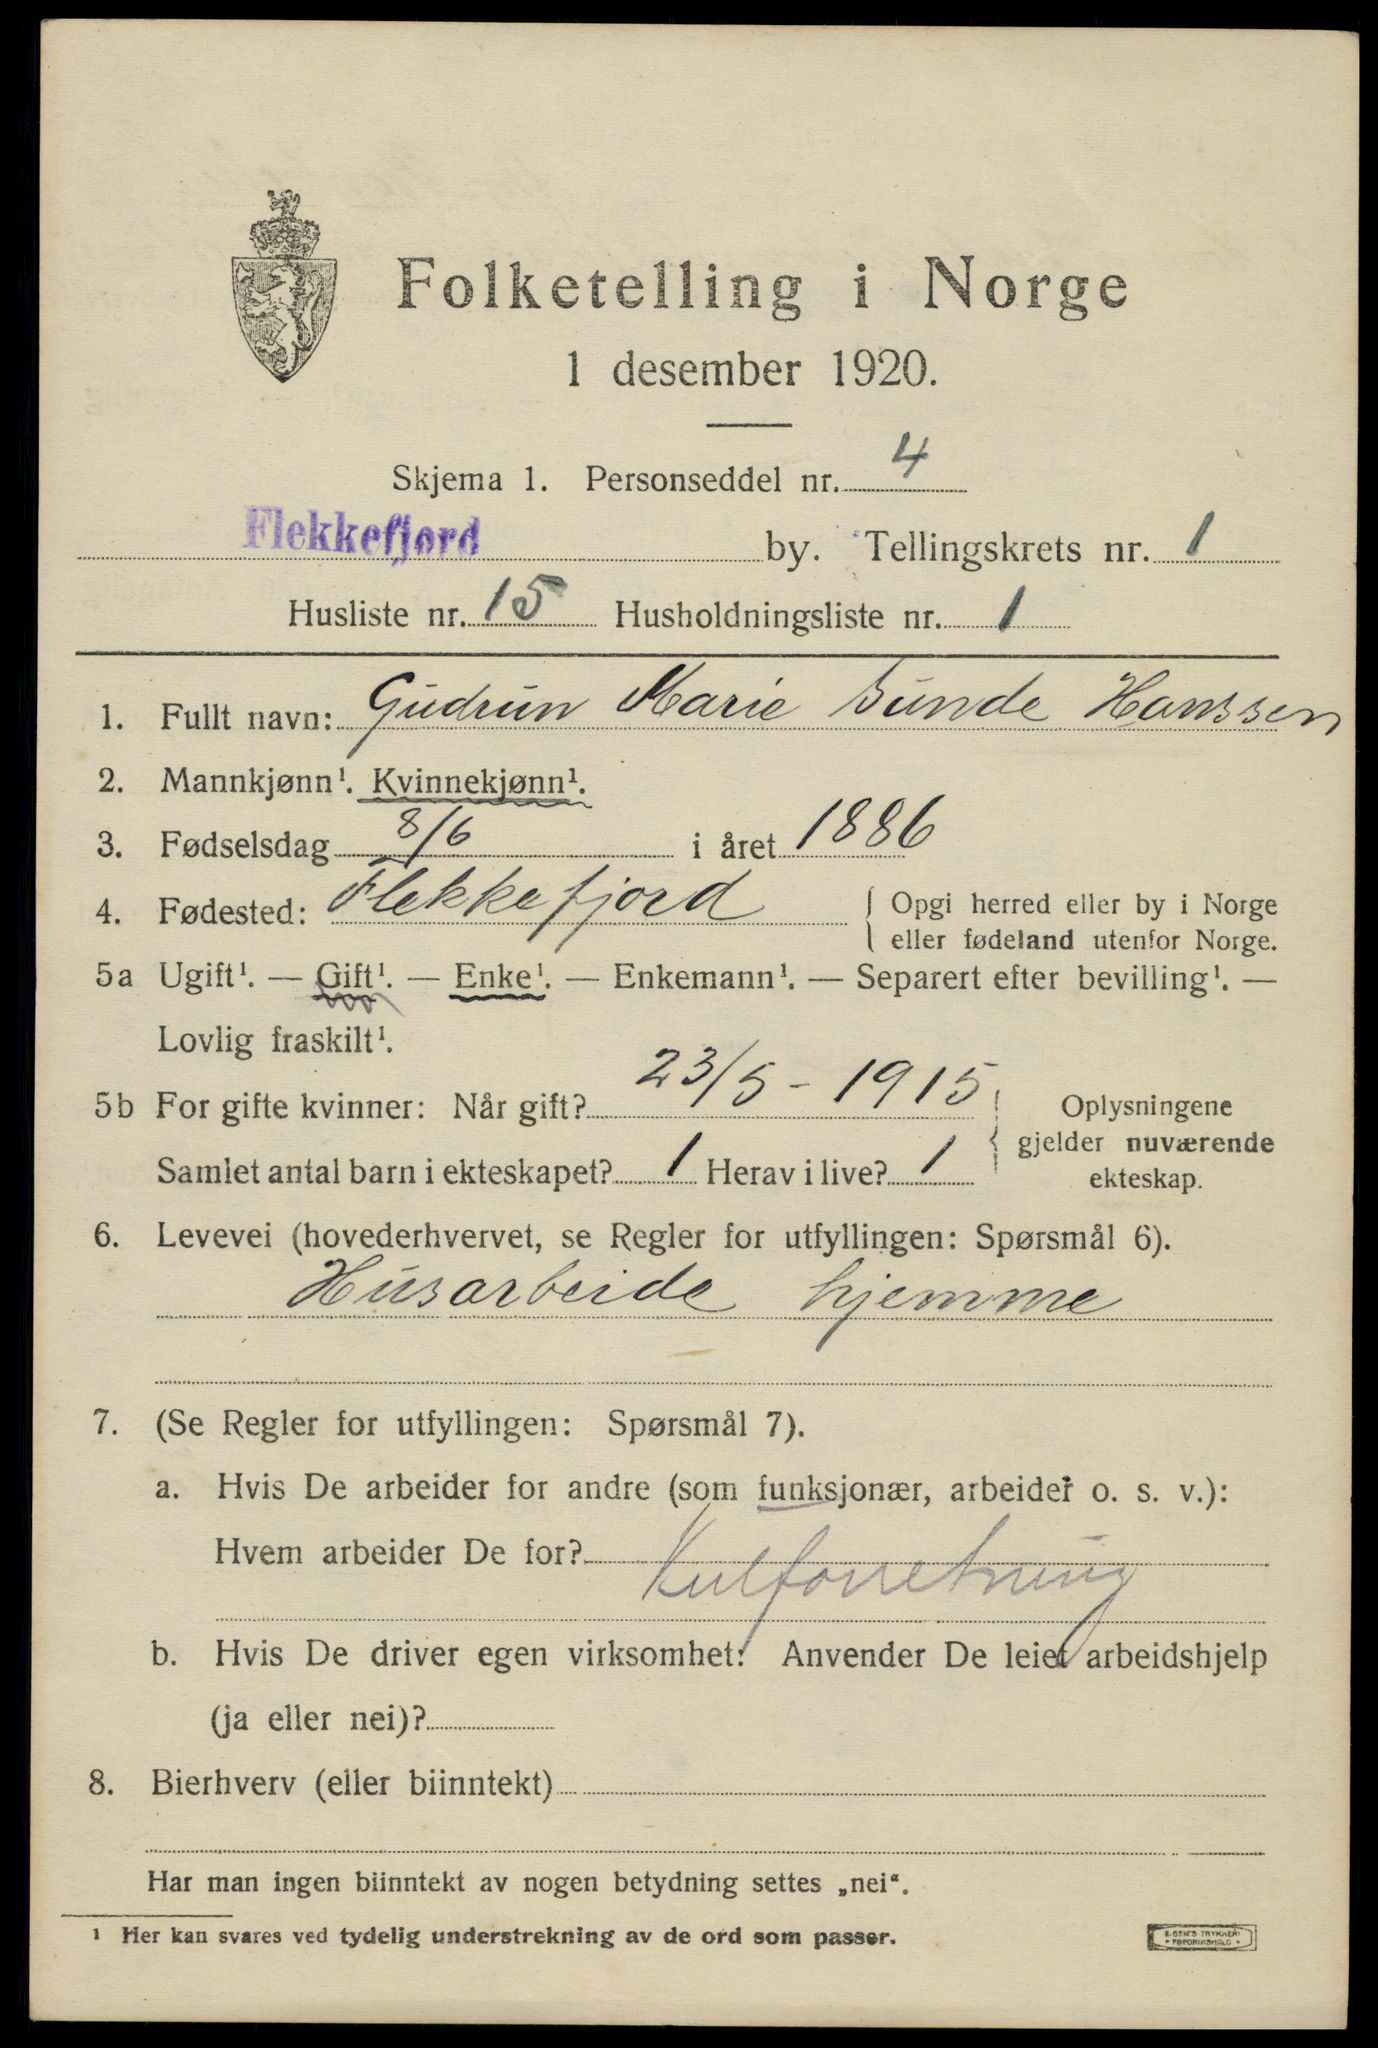 Folketelling i Norge
1 desember 1920.
Skjema 1. Personseddel nr. 4
Flekkefjord by. Tellingskrets nr. 1
Husliste nr. 15 Husholdningsliste nr. 1
1. Fullt navn: Gudrun Marie Sunde Hanssen
2. Mannkjønn¹. Kvinnekjønn¹.
3. Fødselsdag 8/6 i året 1886
4. Fødested: Flekkefjord { Opgi herred eller by i Norge
eller fødeland utenfor Norge.
5a Ugift¹. — Gift¹. — Enke¹. — Enkemann¹. — Separert efter bevilling¹. —
Lovlig fraskilt¹.
5b For gifte kvinner: Når gift? 23/5 - 1915
Samlet antal barn i ekteskapet? 1 Herav i live? 1
Oplysningene
gjelder nuværende
ekteskap.
6. Levevei (hovederhvervet, se Regler for utfyllingen: Spørsmål 6).
Husarbeide hjemme
7. (Se Regler for utfyllingen: Spørsmål 7).
a. Hvis De arbeider for andre (som funksjonær, arbeider o. s. v.):
Hvem arbeider De for?
Kulforretning
b. Hvis De driver egen virksomhet: Anvender De leiet arbeidshjelp
(ja eller nei)?
8. Bierhverv (eller biinntekt)
Har man ingen biinntekt av nogen betydning settes „nei“.
¹ Her kan svares ved tydelig understrekning av de ord som passer.
E. SEM'S TRYKKERI
FREDRIKSHALD